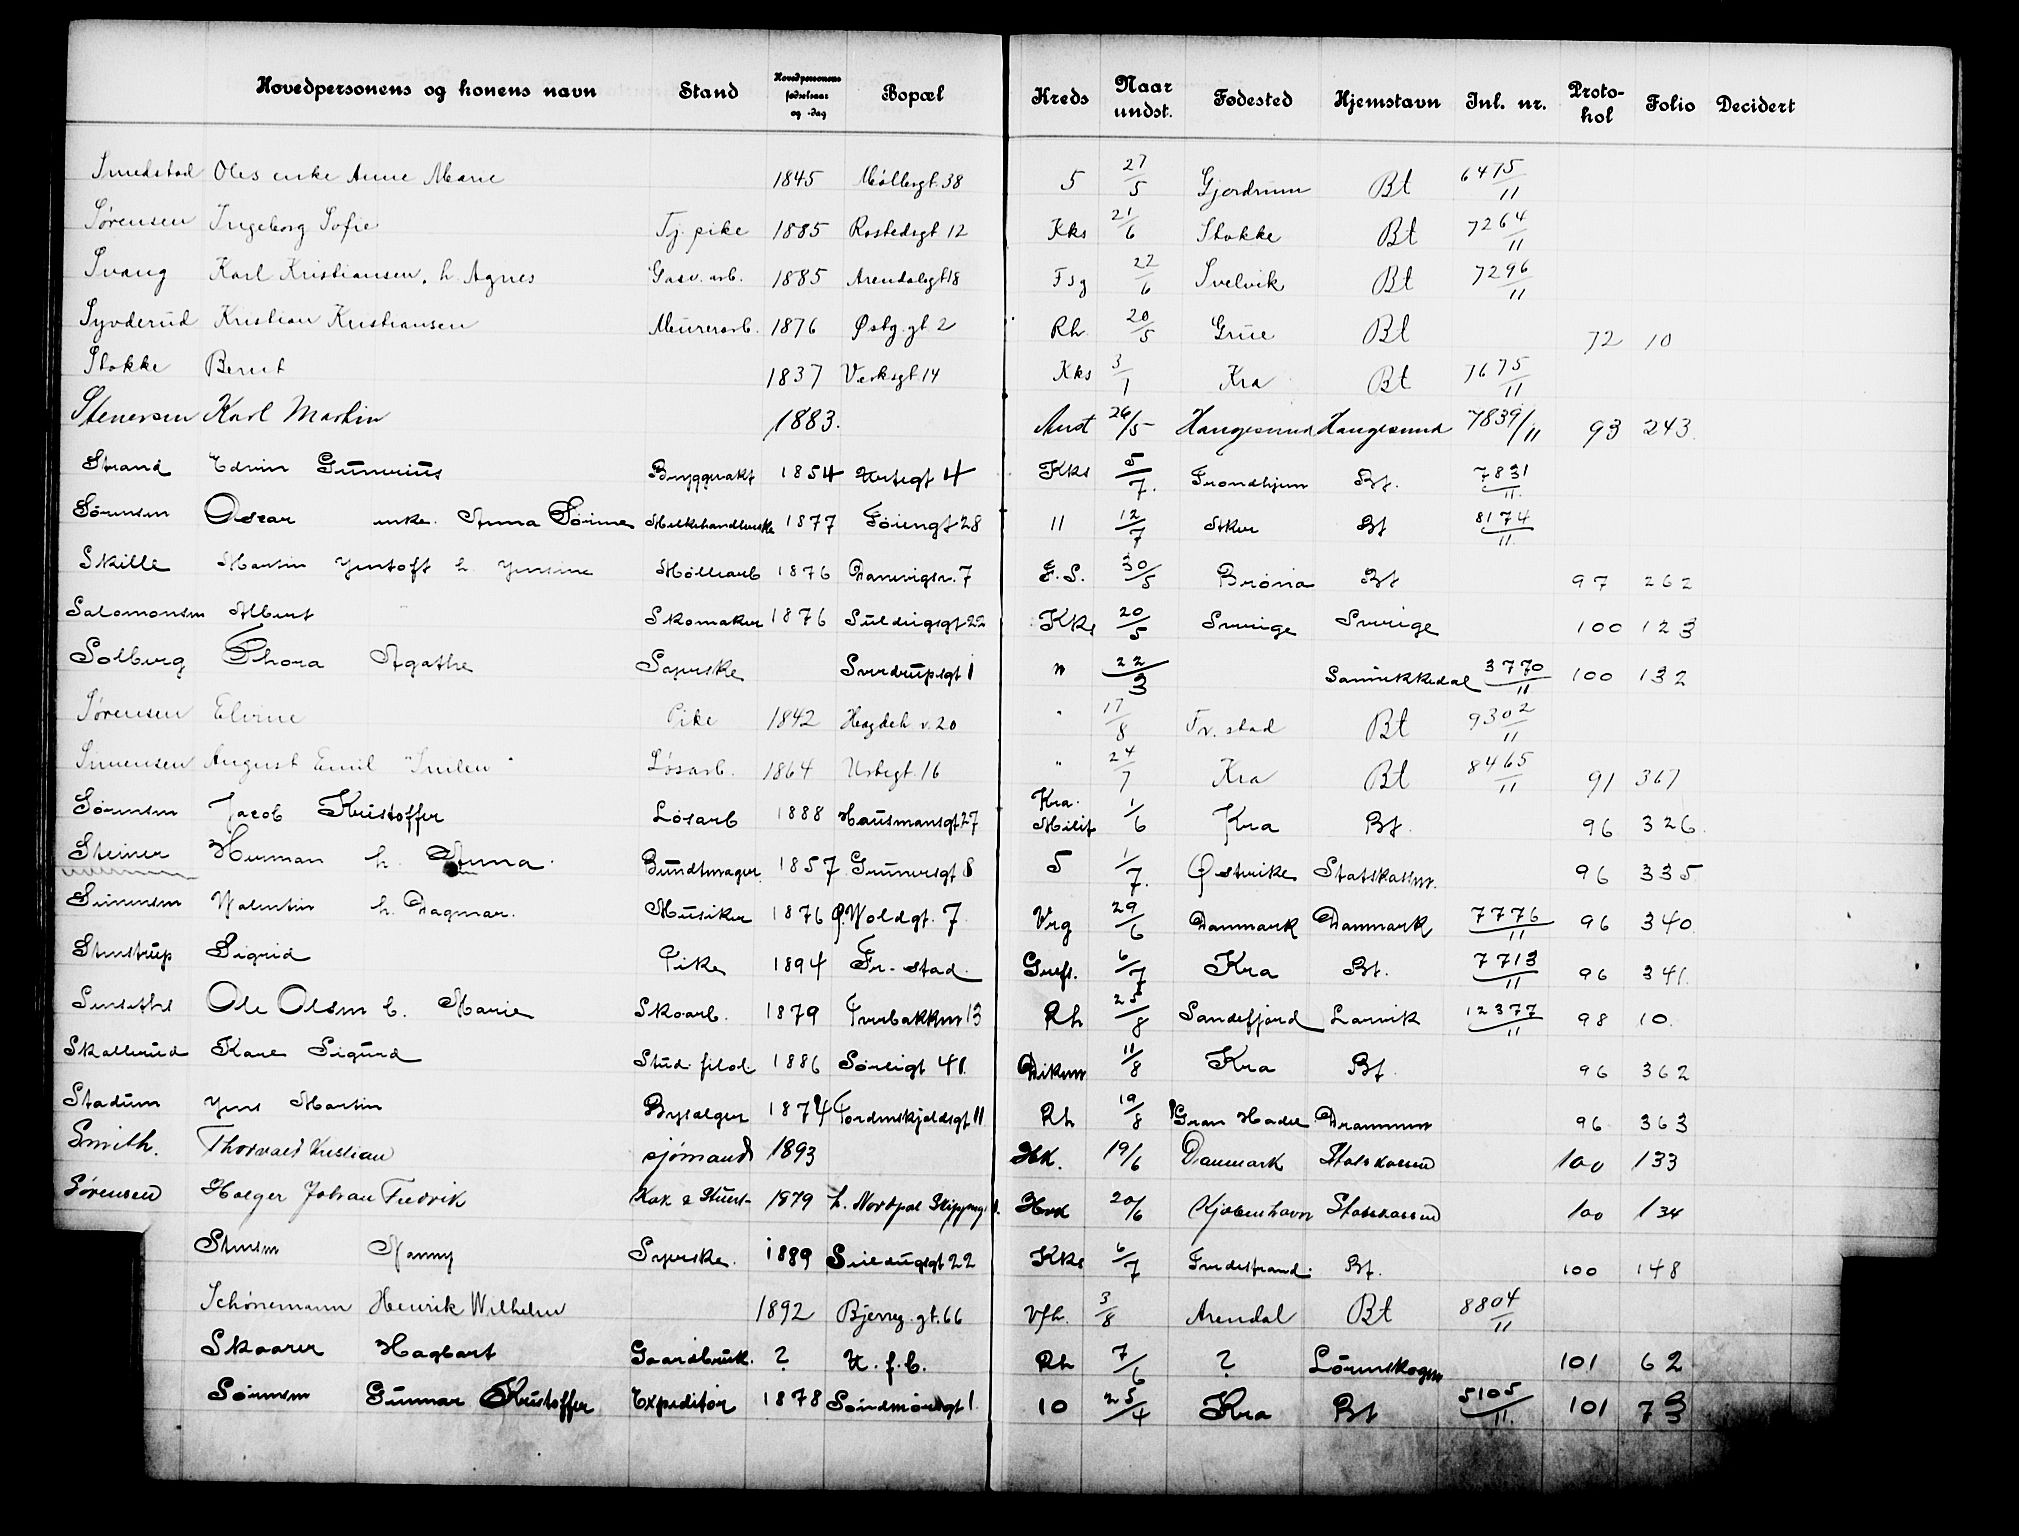 Hovedpersonens og konens navn Stand Hovedpersonens fødselsaar og -dag Bopæl Kreds Naar undst. Fødested Hjemstavn Inl. nr. Protokol Folio Decidert
Smedstad Oles enke Anne Marie 1845 Møllergt. 38 5 27/5 Gjerdrum Bt 6475/11
Sørensen Ingeborg Sofie Tj. pike 1885 Rostedsgt 12 Kks 21/6 Stokke Bt 7264/11
Svang Karl Kristiansen, h. Agnes Gasv. arb. 1885 Arendalsgt 18 Fsg 22/6 Svelvik Bt 7296/11
Syvderud Kristian Kristiansen Murerarb. 1876 Østg. gt 2 Rh. 20/5 Grue Bt 72 10
Stokke Bernt 1837 Verksgt. 14 Kks 3/1 Kra Bt 7675/11
Stenersen Karl Martin 1883. Anst 26/5 Haugesund Haugesund 7839/11 93 243
Strand Edvin Gunerius Bryggvakt 1854 Urtegt 4 Kks 5/7. Trondhjem Bt. 7831/11.
Sørensen Oscar enke. Anna Sørine Melkehandlerske 1877 Føiengt 28 11 12/7 Aker Bt 8174/11.
Skille Martin Jentoft h. Jensine Møllearb 1876 Darrevigsv. 7 F. S. 30/5 Brønø Bt 97 262
Salomonsen Albert Skomaker 1876 Seildugsgt 22 Kks 20/5 Sverige Sverige 100 123
Solberg Thora Agathe Syerske Sverdrupsgt 1 " 22/3 Sannikkedal 3770/11 100 132
Sørensen Elvine Pike 1842 Hegdeh. v. 20 " 17/8 Fr. stad Bt 9302/11
Simensen August Emil "Smilen" Løsarb. 1864 Urtegt. 16 " 24/7 Kra Bt 8465/11 91 367
Sørensen Jacob Kristoffer Løsarb 1888 Hausmansgt 27 Kra. Milit 1/6 Kra Bt. 96 326.
Steiner Herman h. Anna. Bundtmager 1857 Grunersgt 8 5 1/7. Østerike Statskassen. 96 335
Simensen Valentin h. Dagmar. Musiker 1876 Ø. Voldgt. 7 Vrg 29/6 Danmark Danmark 7776/11 96 340
Stenstrup Sigrid Pike 1894 Fr.-stad. Grefs. 6/7 Kra Bt. 7713/11 96 341.
Ole Olsen h. Marie Skoarb. 1879 Tverbakken 13 Rh 25/8 Sandefjord Larvik 12377/11 98 10.
Skallerud Karl Sigurd Stud. filol. 1886 Sørligt 41. Dikem. 11/8 Kra Bt. 96 362
Stadum Jens Martin Bysælger 1874 Tordenskjoldsgt 11 Rh 19/8 Gran Hadel Drammen 96 363
Smith. Thorvald Kristian sjømand 1893 Hk. 19/6 Danmark Statskassen 100 133
Sørensen Holger Johan Fredrik Kok & Stuert 1879 h. Nordpol Hvd 20/6 Kjøbenhavn Statskassen 100 134
Stensen Nanny Syerske. 1889 Seildugsgt 22 Kks 6/7 Tvedestrand. Bt. 100 148
Schønemann Henrik Wilhelm 1892 Bjerreg. gt. 66 Vfh. 3/8 Arendal Bt 8804/11
Skaarer Hagbart Gaardbruk. ? U. f. b. Rh 7/6 ? Lørenskogen 101 62
Sørensen Gunnar Kristoffer Expeditør 1878 Søndmørsgt 1. 10 25/4 Kra Bt 5105/11. 101 73